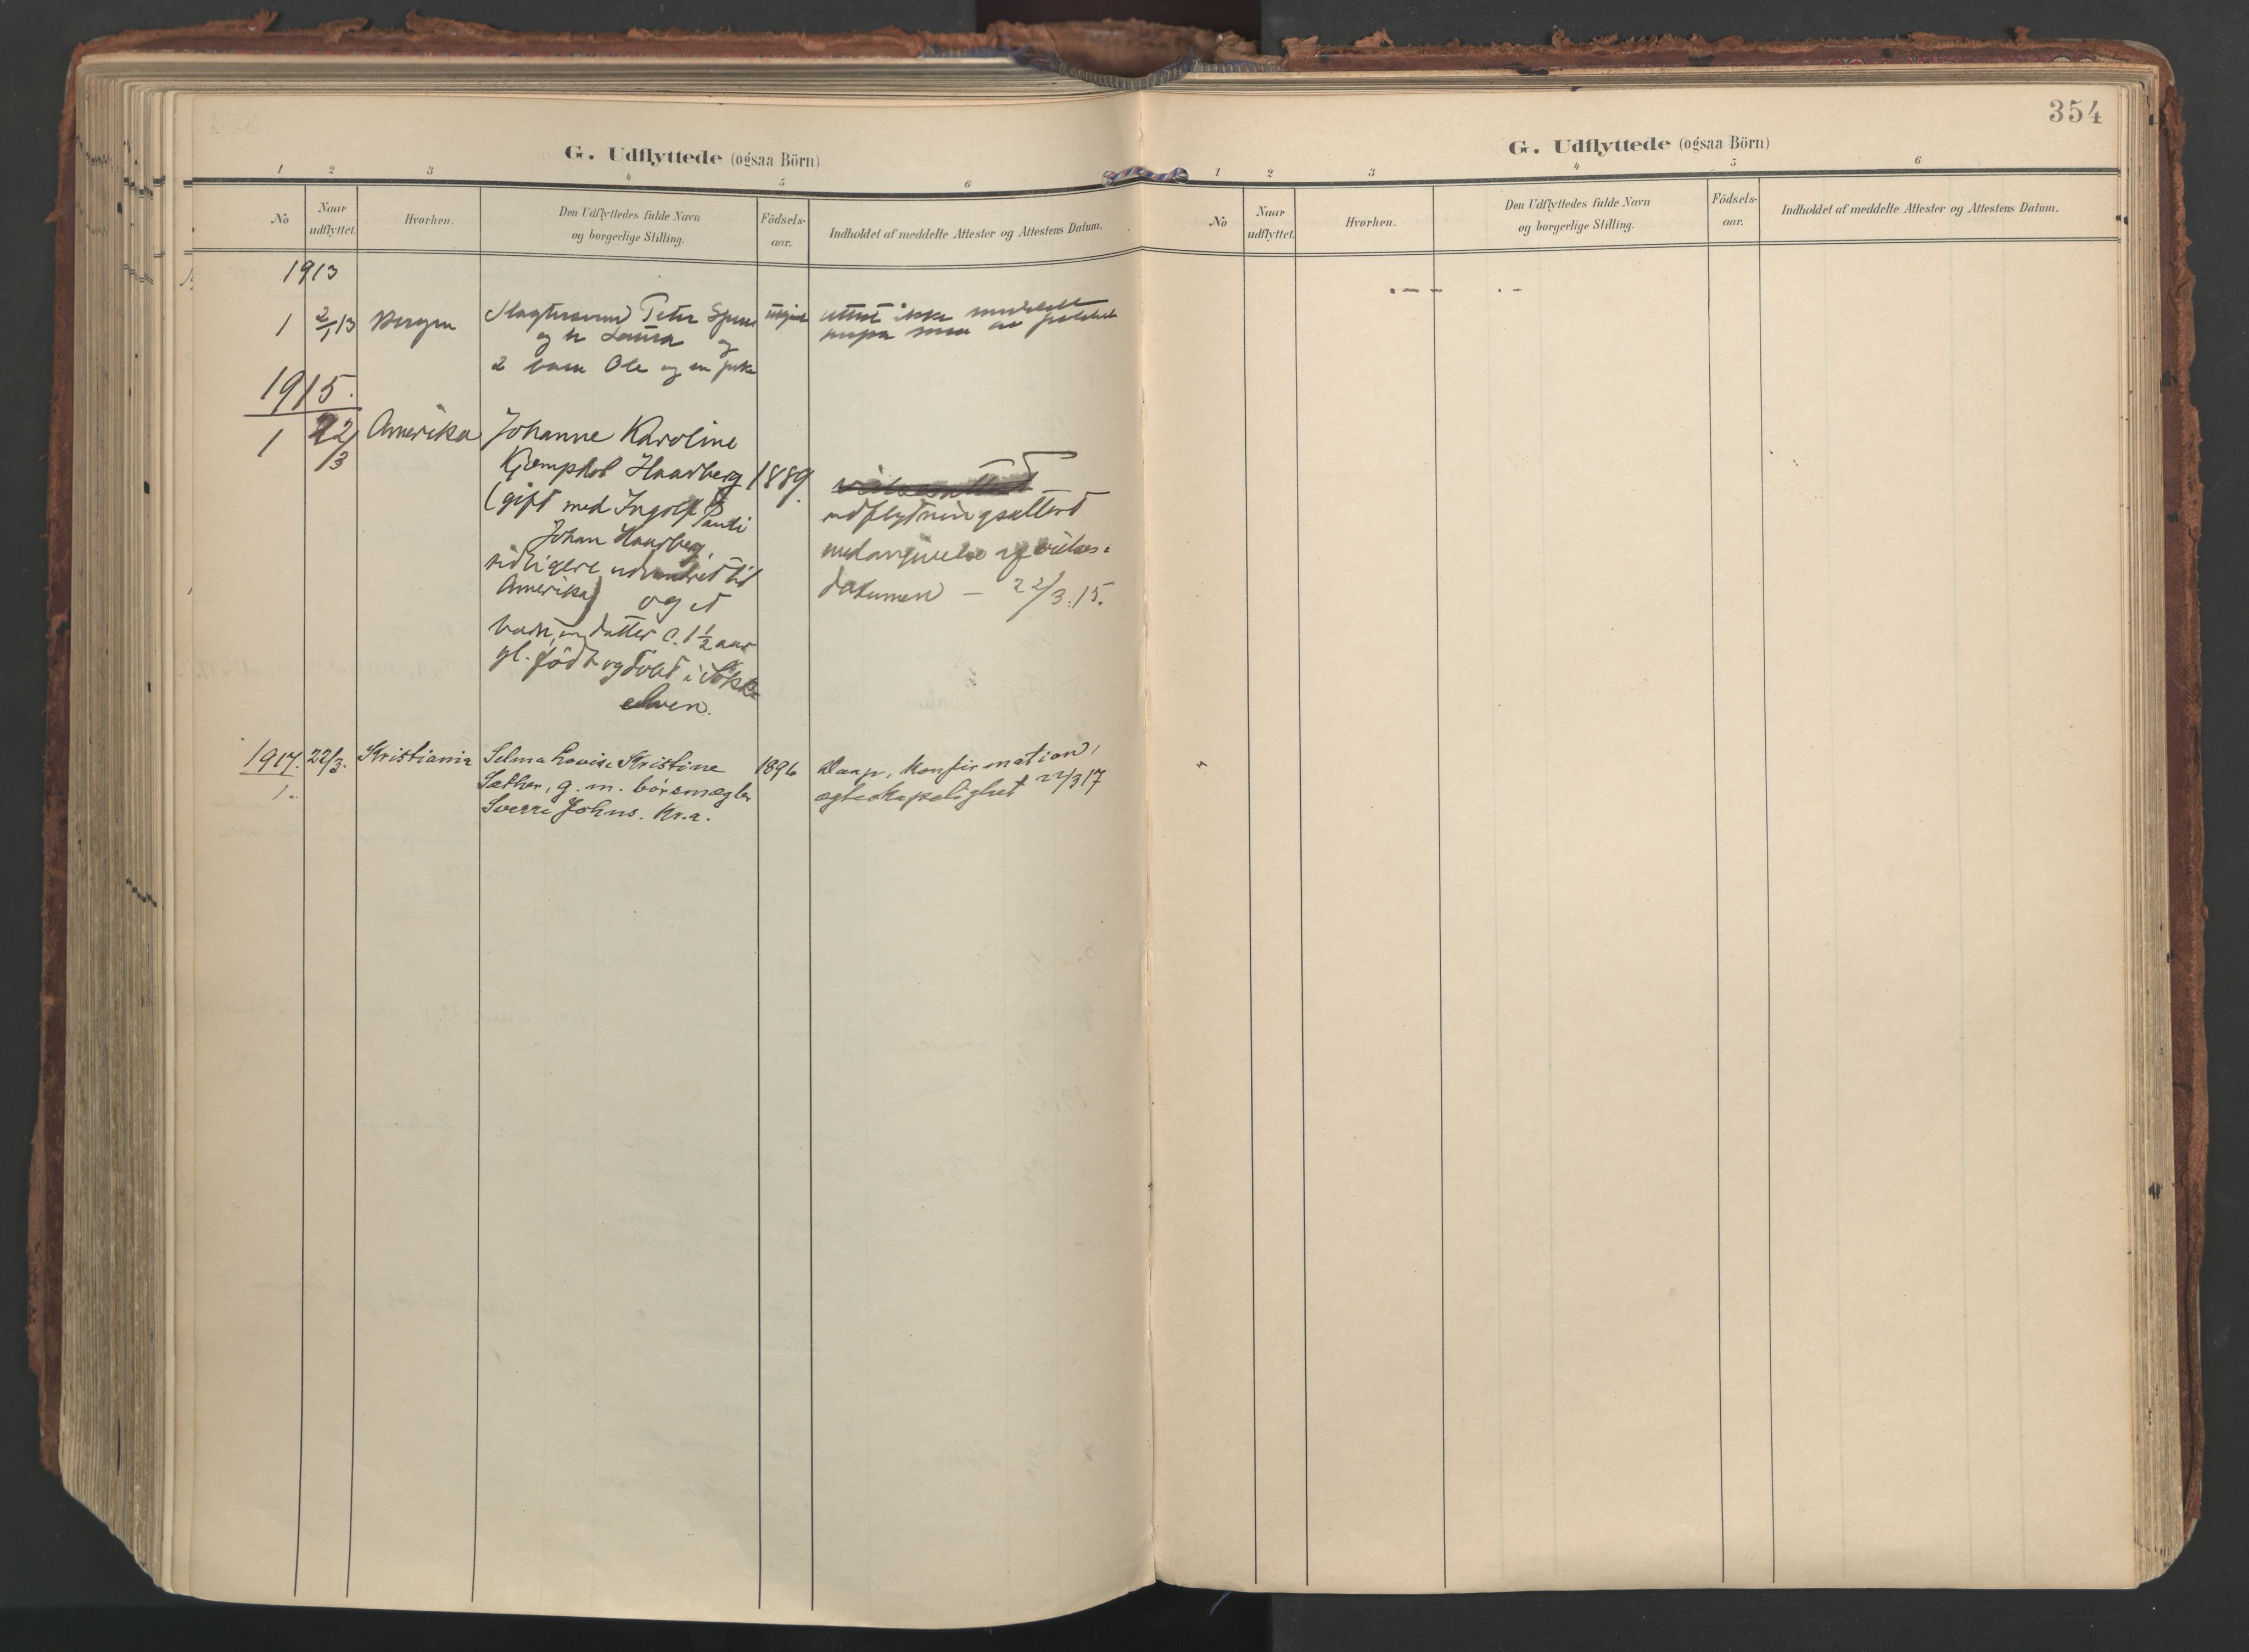 G. Udflyttede (ogsaa Börn)
1 2 3 4 5 6
No Naar udflyttet. Hvorhen. Den Udflyttedes fulde Navn og borgerlige Stilling. Födsels-aar. Indholdet af meddelte Attester og Attestens Datum.
1913
1 2/1 13 Bergen Peter
og h Laura og
2 barn Ole og en pike
attest ikke meddelt
1915.
1 22/3 Amerika Johanne Karoline
Kjemphol Haarberg 1889.
(gift med Ingolf Pauli
Johan Haarberg,
tidligere udvandret til
Amerika) og et
barn, en datter c. 1 1/2 aar
gl. født og døbt i Sokk-
elven.
vielsesattest
udflytningsattest
med angivelse af vielses-
datumen – 22/3.15.
1917. 22/3. Kristiania Selma Lovise Kristine 1896 Daap, Konfirmation,
1. Sæther, g. m. börsmægler ægteskapslighet 22/3 17
Sverre Johns. Kr.a.
354
G. Udflyttede (ogsaa Börn)
1 2 3 4 5 6
No Naar udflyttet. Hvorhen. Den Udflyttedes fulde Navn og borgerlige Stilling. Födsels-aar. Indholdet af meddelte Attester og Attestens Datum.